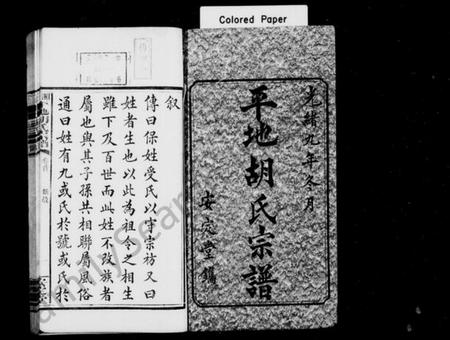 Colored Paper
光緒九年冬月
平地胡氏宗譜
安定堂鐫
叙
傳曰保姓受氏以守宗祊又曰
姓者生也以此為祖令之相生
雖下及百世而此姓不改族者
屬也與其子孫共相聯屬風俗
通曰姓有九或氏於號或氏於